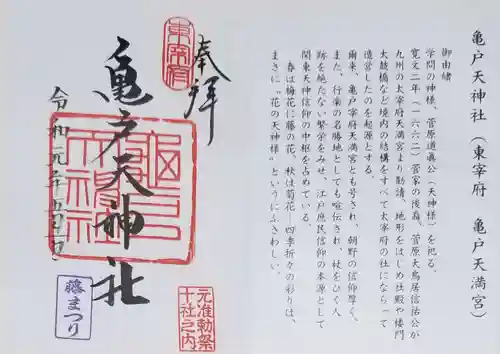 亀戸天神社（東宰府　亀戸天満宮）
御由緒
学問の神様、菅原道眞公（天神様）を祀る。
寛文二年（一六六二）菅家の後裔、菅原大鳥居信祐公が
九州の太宰府天満宮より勧請、地形をはじめ社殿や楼門
太鼓橋など境内の結構をすべて太宰府の社にならって
造営したのを起源とする。
爾来、亀戸宰府天満宮とも号され、朝野の信仰厚く、
また、行楽の名勝地としても喧伝され、杖をひく人
跡を絶たない繁栄をみせ、江戸庶民信仰の本源として
関東天神信仰の中枢を占めている。
春は梅花に藤の花、秋は菊花―四季折々の彩りは、
まさに『花の天神様』というにふさわしい。
奉拝
東宰府
亀戸天神社
亀戸
天神社
令和元年五月一日
藤まつり
元准勅祭
十社之内